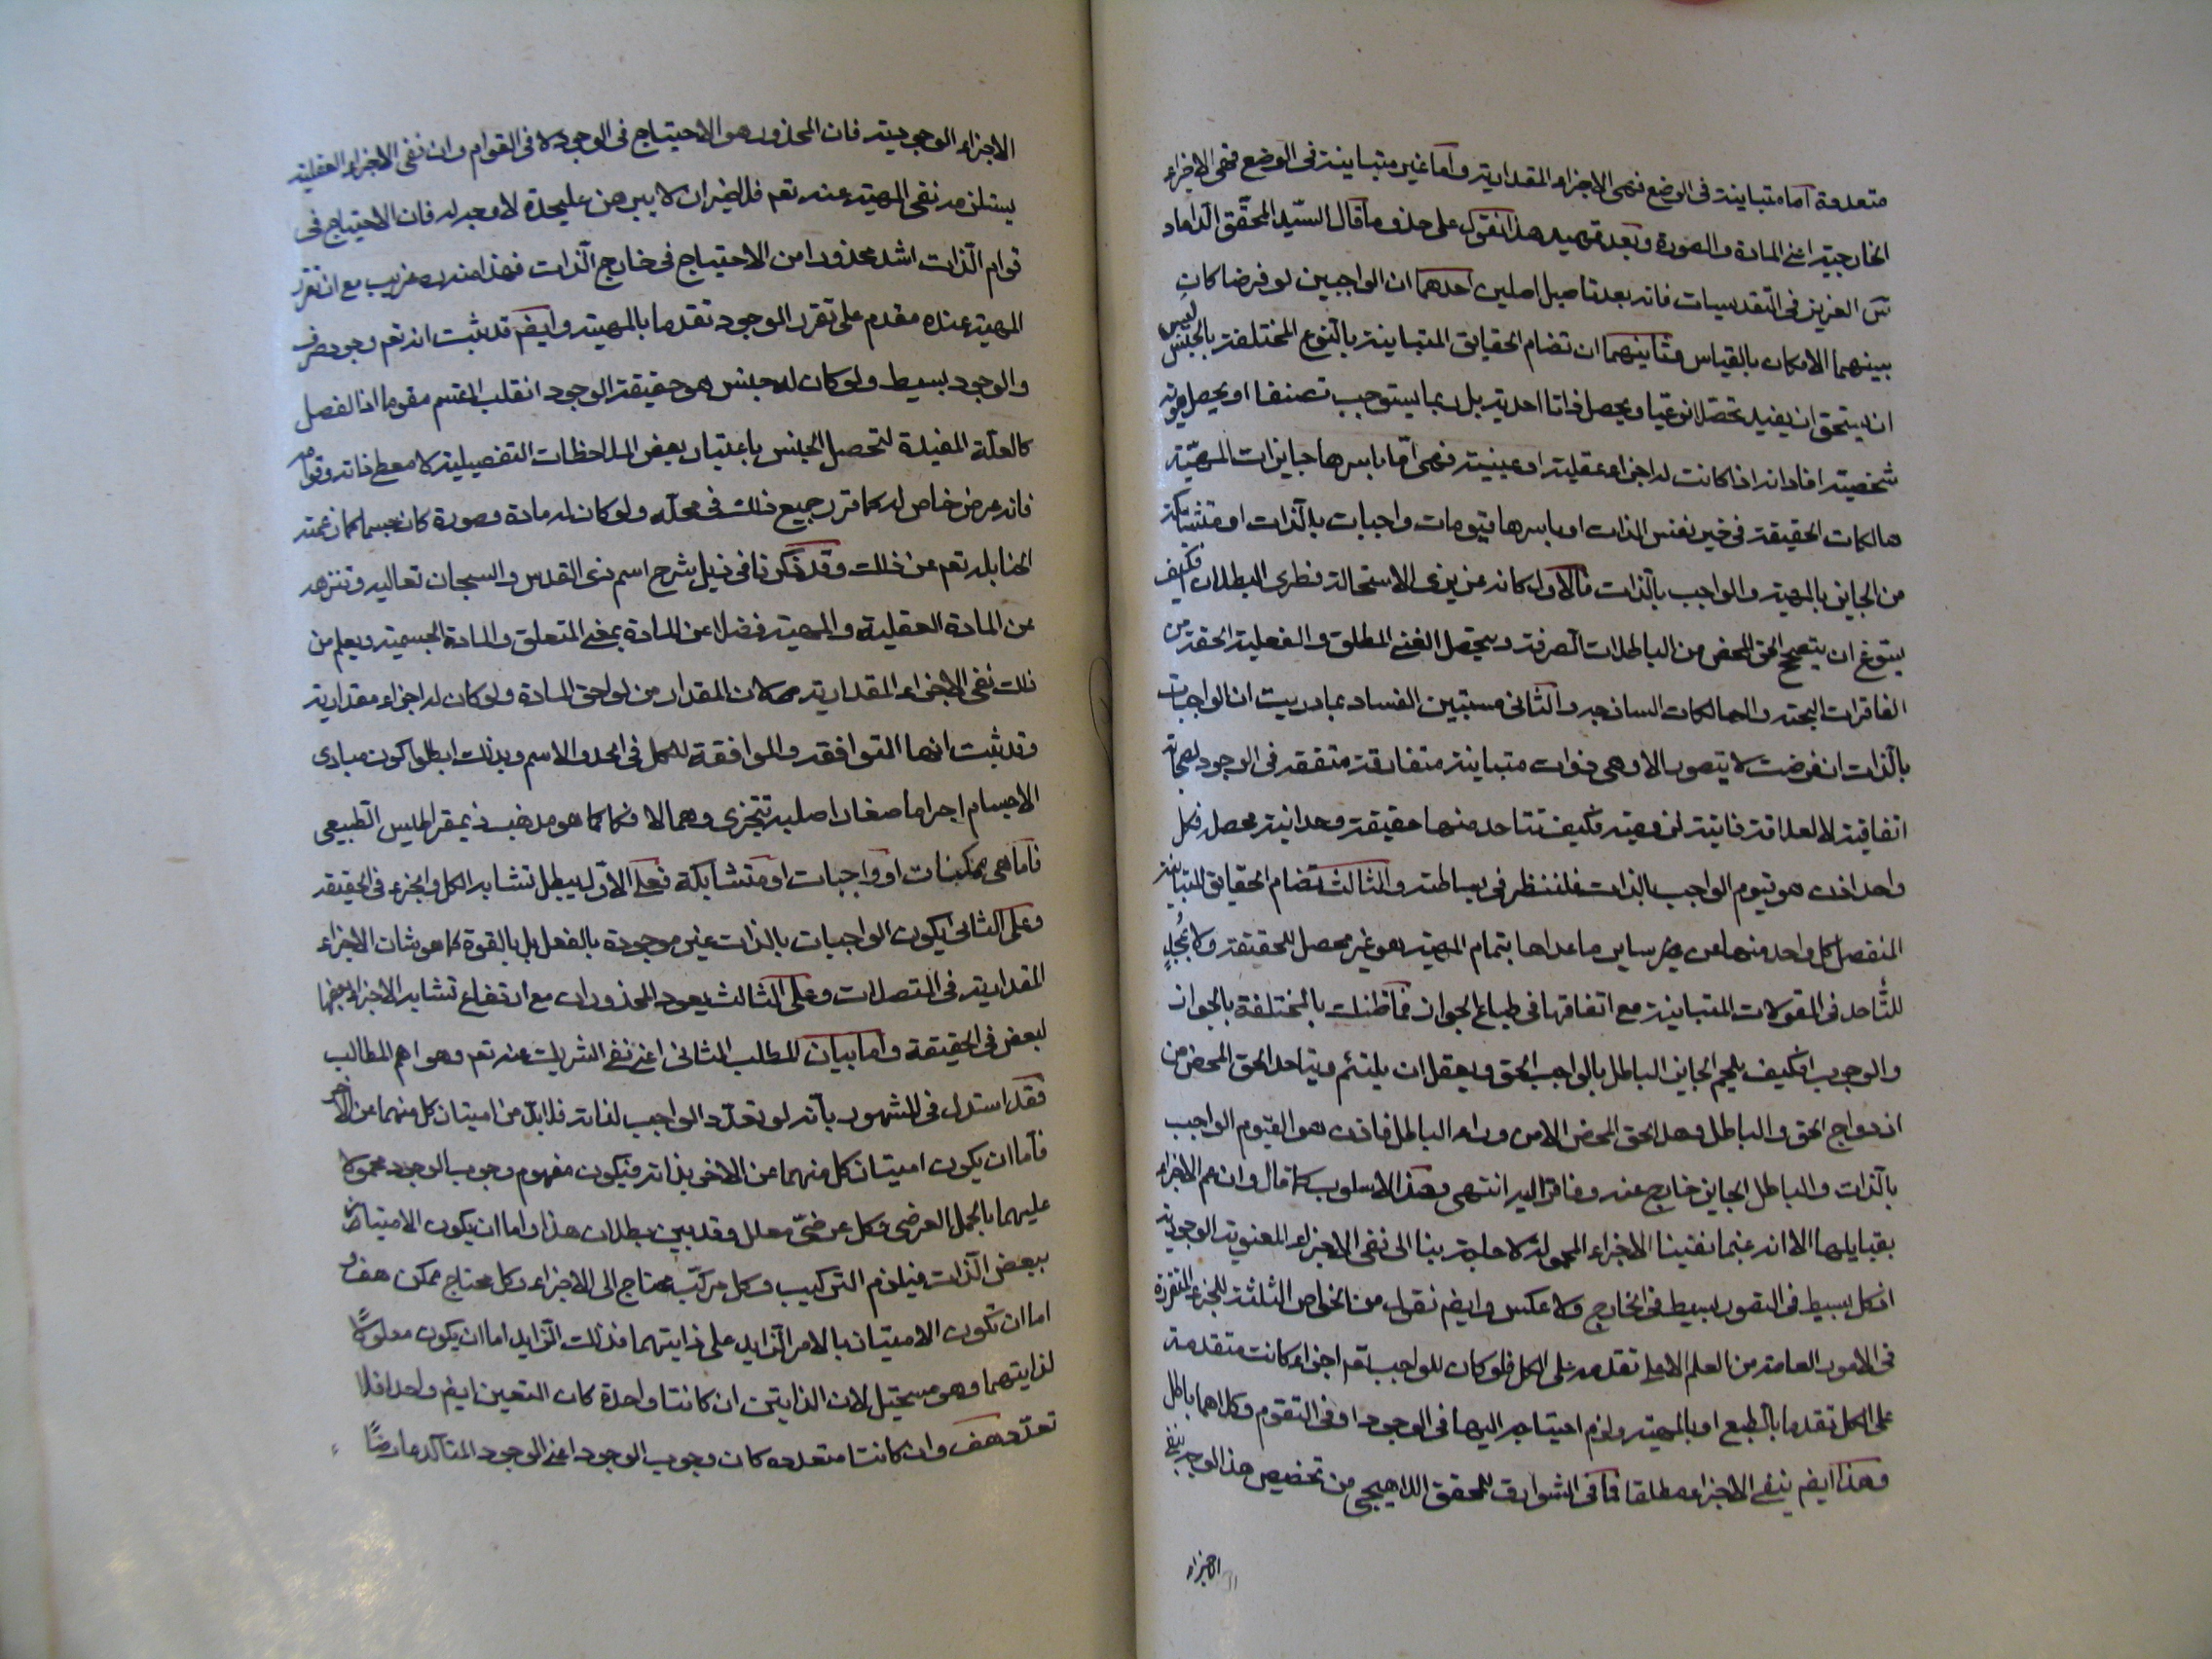 متعددة اما متباينة فى الوضع فهى الاجزاء المقدارية واما غير متباينة فى الوضع فهى الاجزاء
الخارجية اعنى المادة والصورة وبعد تمهيد هذا نقول على حذو ما قال السيّد المحقّق الداماد
سّ العزيز فى التقديسات فانه بعد تاصيل اصلين احدهما ان الواجبين لو فرضا كان
بينهما الامكان بالقياس وثانيهما ان تضام الحقايق المتباينة بالنوع المختلفة بالجنس ليس
ان يستحق ان يفيد تحصّلا نوعيّا ويحصل ذاتا احدية بل ربما يستوجب تصنفا او يحصل هوية
شخصية افاد انه اذا كانت له اجزاء عقلية او عينية فهى امّا باسرها جايزات المهيّة
هالكات الحقيقة فى حيز نفس الذات او باسرها قيومات واجبات بالذات او متشابكة
من الجايز بالمهية والواجب بالذات فالاول كانه غريزى الاستحالة فطرى البطلان افكيف
يسوغ ان يتصحح الحق المحض من الباطلات الصرفة ويتحصل الغنى المطلق والفعلية الحقة من
الفاقرات البحتة والهالكات الساذجة والثانى مستبين الفساد بما دريت ان الواجبات
بالذات ان فرضت لا يتصور الا وهى ذوات متباينة متفارقة متفقة فى الوجود بصحابة
اتفاقية لا لعلاقة ذاتية لزومية فكيف تتاحد منها حقيقة وحدانية محصلة فكل
واحد اذن هو قيوم الواجب بالذات فلننظر فى بساطته والثالث تضام الحقايق المتباينة
المنفصل كل واحد منها عن سنخ ساير ما عداها بتمام المهية هو غير محصل للحقيقة ولا مُجدٍ
للتّاحد فى المقولات المتباينة مع اتفاقها فى طباع الجواز فما ظنك بالمختلفة بالجواز
والوجوب افكيف يلتحم الجايز الباطل بالواجب الحق ويعقل ان يلتئم ويتاحد الحق المحض من
ازدواج الحق والباطل وهل الحق المحض الامن وراء الباطل فاذن هو القيوم الواجب
بالذات والباطل الجايز خارج عنه وفاقر اليه انتهى وهذا الاسلوب كما قال وان عم الاجزاء
بقبايلها الا انه عندما نفينا الاجزاء المحمولة لا حاجة بنا الى نفى الاجزاء المعنوية الوجودية
اذ كل بسيط فى التصور بسيط فى الخارج ولا عكس وايضم نقول من الخواص الثلثة للجزء المقررة
فى الامور العامة من العلم الاعلى تقدمه على الكل فلو كان للواجب تعم اجزاء كانت متقدمة
على الكل تقدما بالطبع او بالمهية ولزم احتياجه اليها فى الوجود او فى التقوم وكلاهما باطل
وهذا ايضم ينفى الاجزاء مطلقا فما فى الشوارق للمحقق اللاهيجى من تخصيص هذا الوجه بنفى
الاجزاء
الاجزاء الوجودية فان المحذور هو الاحتياج فى الوجود لا فى القوام وان نفى الاجزاء العقلية
يستلزمه نفى المهية عنه تعم فله الخيران لا يبرهن عليحدة لا وجه له فان الاحتياج فى
قوام الذات اشد محذورا من الاحتياج فى خارج الذات فهذا منه ره غريب مع ان تقرر
المهية عنده مقدم على تقرر الوجود تقدما بالمهية وايضم قد ثبت انه تعم وجود صرف
والوجود بسيط ولو كان له جنس هو حقيقة الوجود انقلب المقسم مقوما اذ الفصل
كالعلّة المفيدة لتحصل الجنس باعتبار بعض الملاحظات التفصيلية لا معطى ذاته وقوامه
فانه عرض خاص له كما قرر جميع ذلك فى محلّه ولو كان له مادة وصورة كان جسما كما زعمته
الحنابلة تعم عن ذلك وقد ذكرنا فى ذيل شرح اسم ذى القدس والسبحان تعاليه وتنزهه
عن المادة العقلية والمهية فضلا عن المادة بمعنى المتعلق والمادة الجسمية ويعلم من
ذلك نفى الاجزاء المقدارية لان المقدار من لواحق المادة ولو كان له اجزاء مقدارية
وقد ثبت انها المتوافقة والموافقة للكل فى الحد والاسم وبذلك ابطلوا كون مبادى
الاجسام اجراما صغارا صلبة تتجزى وهما لا فكا كما هو مذهب ذيمقراطيس الطبيعى
فاما هى ممكنات او واجبات او متشابكة فعلى الاوّل يبطل تشابه الكل والجزء فى الحقيقة
وعلى الثانى يكون الواجبات بالذات غير موجودة بالفعل بل بالقوة كما هو شان الاجزاء
المقدارية فى المتصلات وعلى الثالث يعود المحذوران مع ارتفاع تشابه الاجزاء بعضها
لبعض فى الحقيقة واما بيان المطلب الثانى اعنى نفى الشريك عنه تعم وهو اهم المطالب
فقد استدل فى المشهور بانه لو تعدّد الواجب لذاته فلابدّ من امتياز كل منهما عن الاخر
فاما ان يكون امتياز كل منهما عن الاخر بذاته فيكون مفهوم وجوب الوجود محمولا
عليهما بالحمل العرضى وكل عرضىّ معلل وقد بين بطلان هذا واما ان يكون الامتياز
ببعض الذات فيلزم التركيب وكل مركّب محتاج الى الاجزاء وكل محتاج ممكن هف و
اما ان تكون الامتياز بالامر الزايد على ذاتيهما فذلك الزايد اما ان يكون معلولًا
لذاتيهما وهو مستحيل لان الذاتين ان كانتا واحدة كان التعين ايضم واحدا فلا
تعدّد هف وان كانتا متعدده كان وجوب الوجود اعنى الوجود المتاكد عارضًا